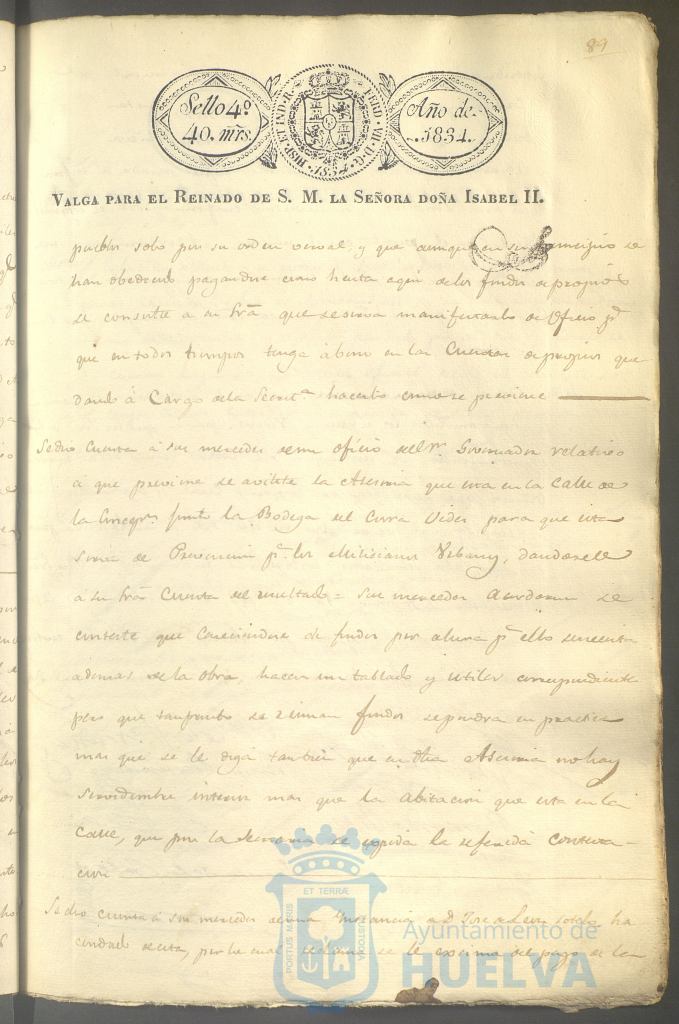 89
Sello 4º
40. mrs.
HISP. ET IND. R. FERD. VII. D. G.
1834.
Año de
1834.
VALGA PARA EL REINADO DE S. M. LA SEÑORA DOÑA ISABEL II.
pueblos solo por su orden verval y que aunque en su principio se
han obedecido pagandose como hasta aqui de los fondos de propios
se consulte a su Sría que se sirva manifestarlo de Oficio pª
que en todos tiempos tenga abono en las Cuentas de propios que
dando á Cargo de la Secretª hacerlo como se previene
Se dio Cuenta á sus mercedes de un oficio del Sr. Governador relativo
a que previene se avilite la que esta en la Calle de
la Concepn. junto la Bodega del para que esta
sirva de Prevencion pª los Milicianos Urbanos, dandosele
a su Sría Cuenta del resultado = sus mercedes Acordaron se
conteste que Careciendose de fondos por ahora pª ello se necesita
ademas de la obra, hacer un tablado y utiles correspondientes
pero que tan pronto se reunan fondos se pondra en practica
mas que se le diga tambien que en dha no hay
mas que la abitacion que esta en la
Calle, que por la Secretaria se espida la referida Contesta-
cion
Se dio cuenta á sus mercedes de una Instancia de D. Jose de Leon Sotelo ha
ciendo , por la cual se le exima del pago de los
ET TERRÆ
PORTUS MARIS
CUSTODIA
Ayuntamiento de
HUELVA